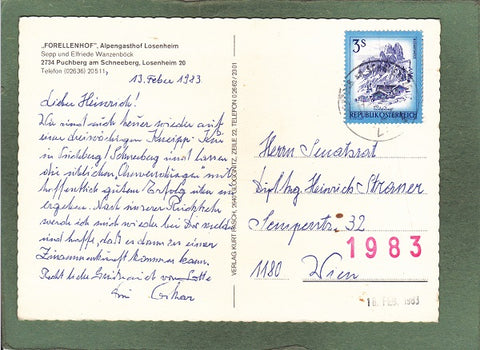 „FORELLENHOF", Alpengasthof Losenheim
Sepp und Elfriede Wanzenböck
2734 Puchberg am Schneeberg, Losenheim 20
Telefon (02636) 20511
13. Feber 1983
Lieber Heinrich!
Wir sind auch heuer wieder auf
einer dreiwöchigen Kneipp Kur
in Puchberg/Schneeberg und lassen
die üblichen Anwendungen mit
hoffentlich gutem Erfolg über uns
ergehen. Nach unserer Rückkehr
werde ich mich wieder bei Dir melden
und hoffe, daß es dann zu einer
Zusammenkunft kommen kann.
Recht liebe Grüße auch von Lotte
Dein Oskar
VERLAG KURT PASCH, 2640 GLOGGNITZ, ZEILE 22, TELEFON 0 26 62 / 23 01
3S
REPUBLIK ÖSTERREICH
Herrn Senatsrat
Dipl. Ing. Heinrich
Sempersstr. 32
1983
1180 Wien
16. FEB. 1983